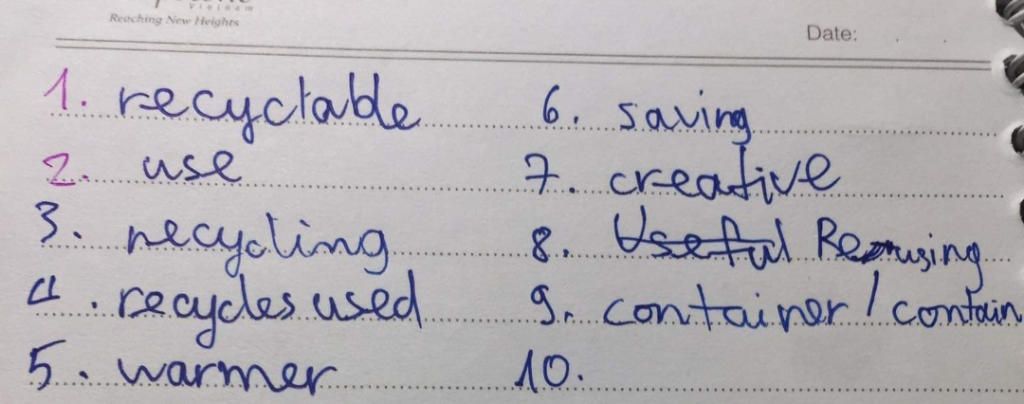 Vietnam
Reaching New Heights
Date:
1. recyctable
2. use
3. recycling
4. recycles used
5. warmer
6. saving
7. creative
8. Useful Reusing
9. container / contain
10.